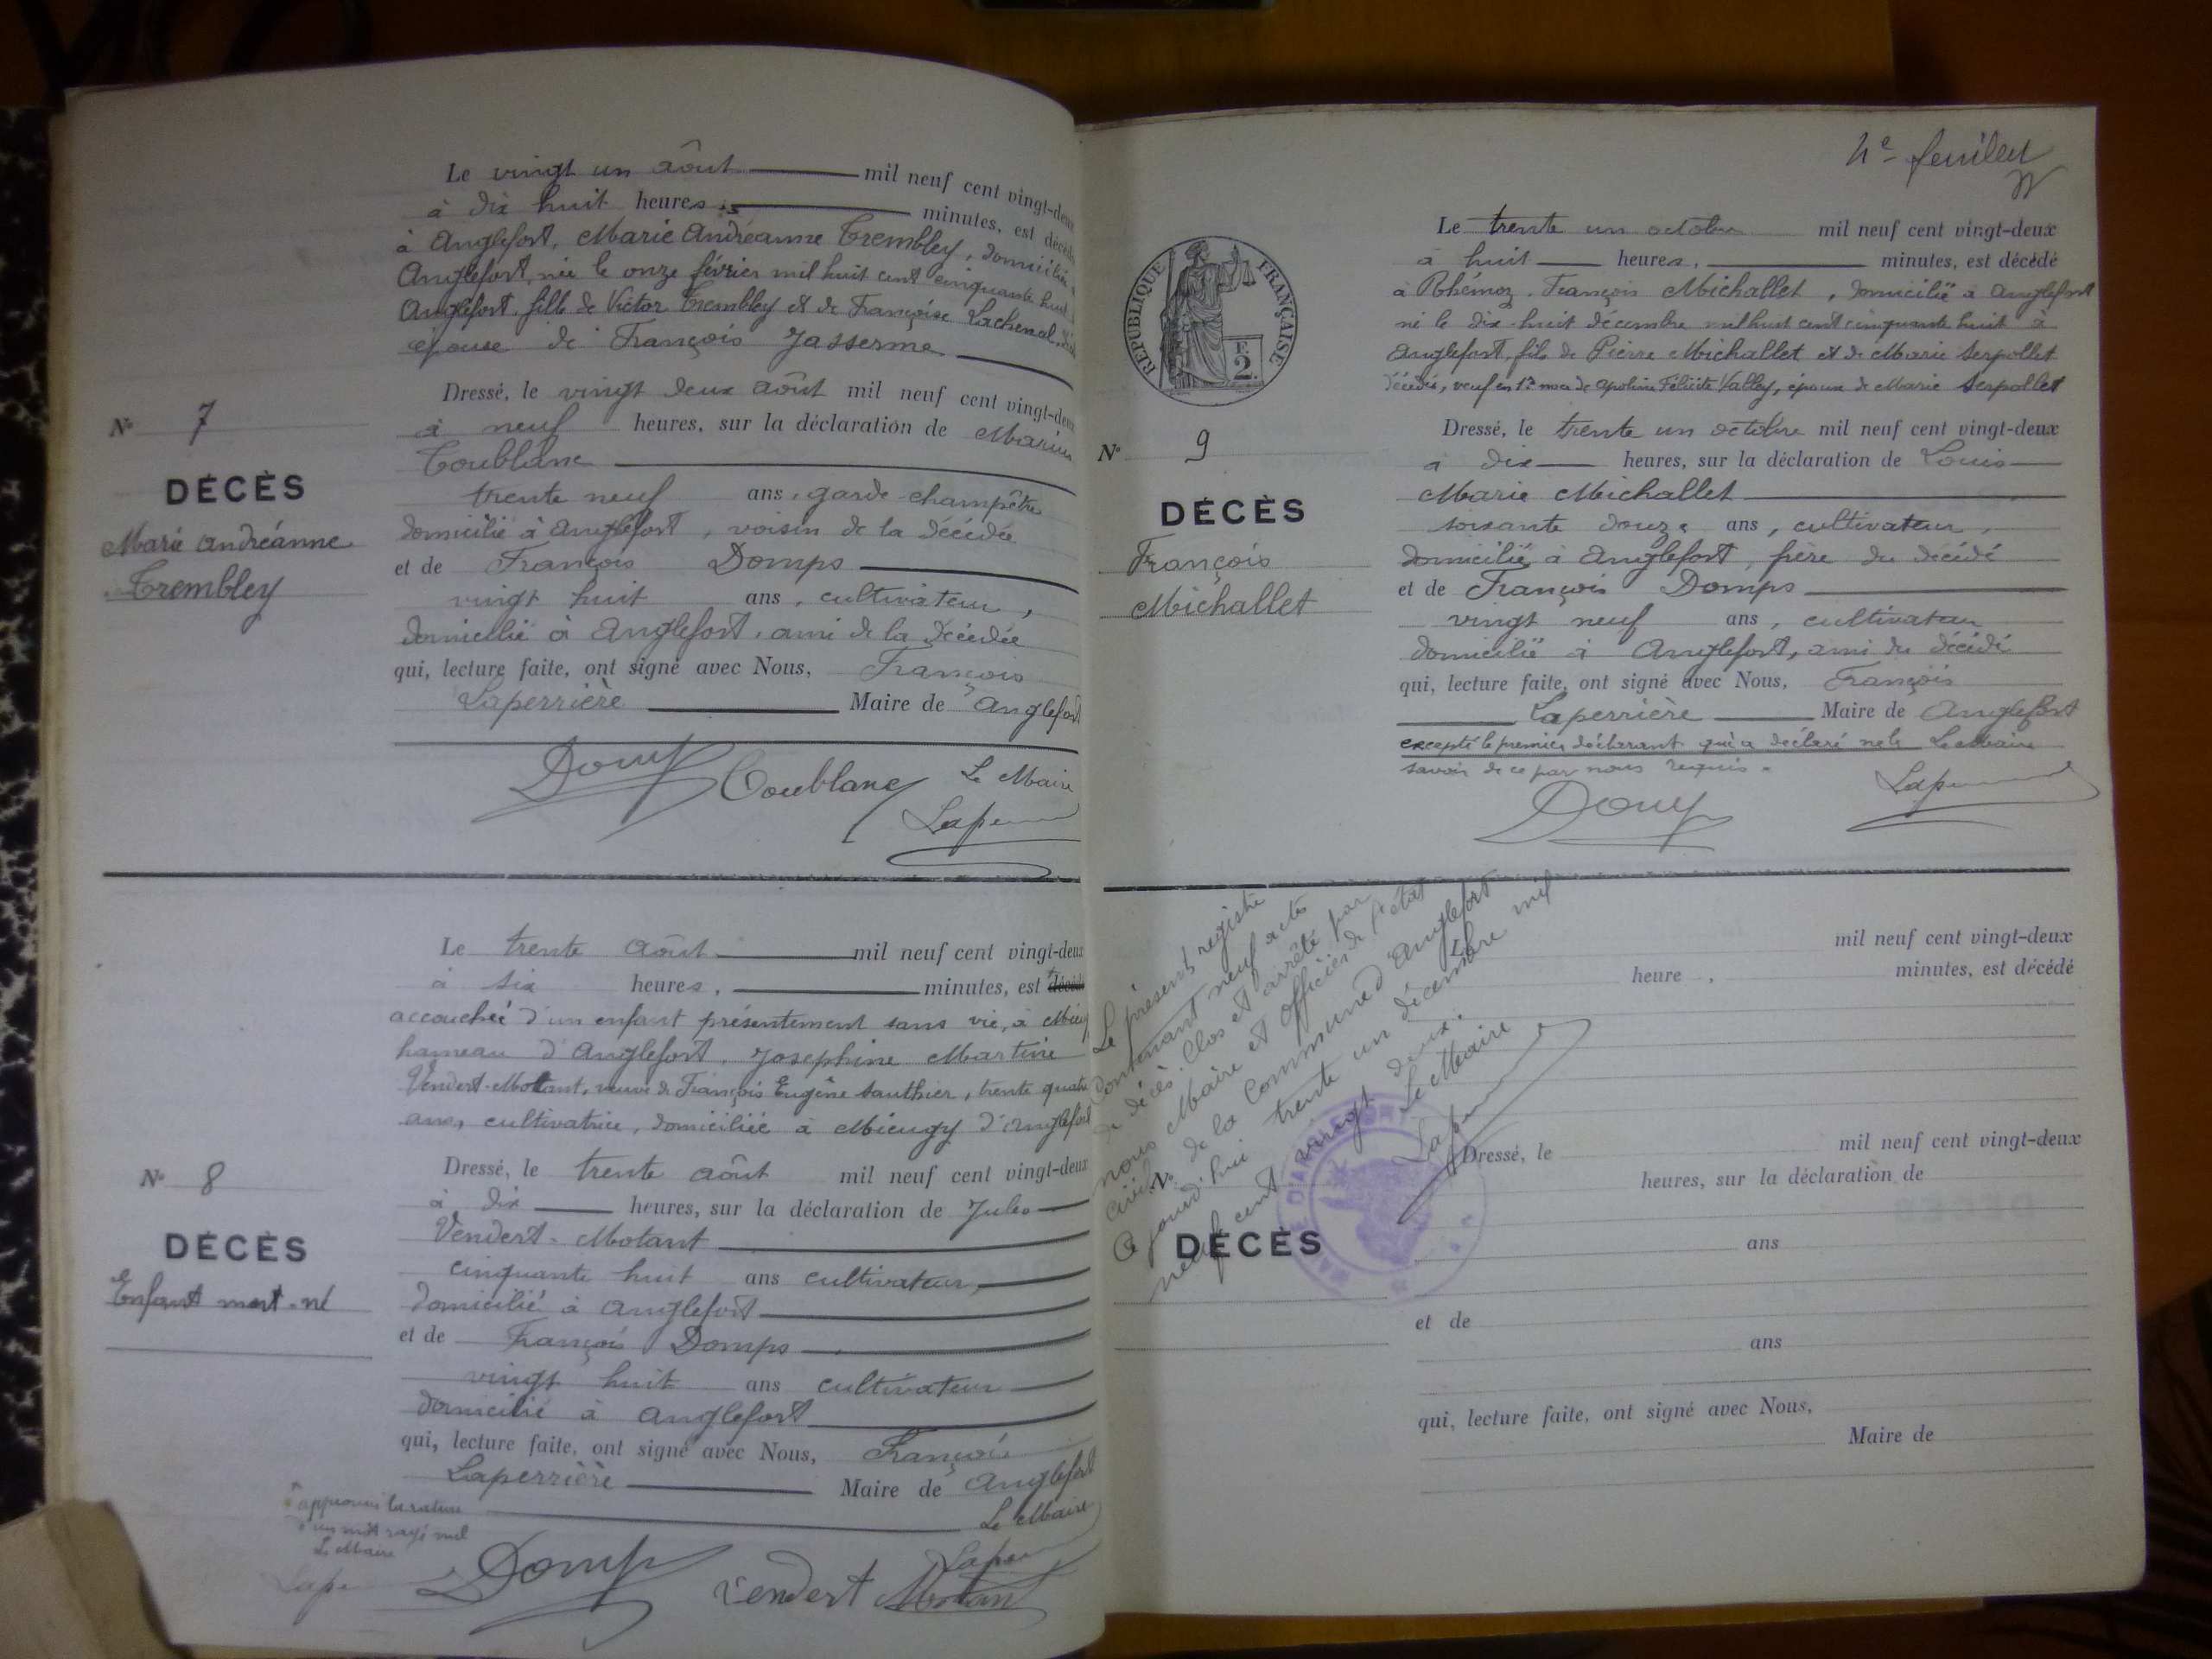 Le vingt un août mil neuf cent vingt-deux
à dix huit heures, minutes, est décédée
à Anglefort, Marie Andréanne Trembley, domiciliée à
Anglefort, née le onze février mil huit cent cinquante huit à
Anglefort, fille de Victor Trembley et de Françoise Lachenal,
épouse de François Jasserme
Dressé, le vingt deux août mil neuf cent vingt-deux
à neuf heures, sur la déclaration de Marius
Coublanc
trente neuf ans, garde-champêtre
domicilié à Anglefort, voisin de la décédée
et de François Domps
vingt huit ans, cultivateur,
domicilié à Anglefort, ami de la décédée
qui, lecture faite, ont signé avec Nous, François
Laperrière Maire de Anglefort
Domps Coublanc Le Maire
Lape
No 7
DÉCÈS
Marie Andréanne
Trembley
Le trente août mil neuf cent vingt-deux
à six heures, minutes, est décédé
accouchée d'un enfant présentement sans vie, à Mieugy
hameau d'Anglefort, Josephine Martine
Vendert-Motant, veuve de François Eugène Sauthier, trente quatre
ans, cultivatrice, domiciliée à Mieugy d'Anglefort
Dressé, le trente août mil neuf cent vingt-deux
à dix heures, sur la déclaration de Jules
Vendert-Motant
cinquante huit ans cultivateur,
domicilié à Anglefort
et de François Domps
vingt huit ans cultivateur
domicilié à Anglefort
qui, lecture faite, ont signé avec Nous, François
Laperrière Maire de Anglefort
Le Maire
approuvé la rature
d'un mot rayé nul
Le Maire
Lape
Domps Vendert Motant
No 8
DÉCÈS
Enfant mort-né
4e feuillet
RÉPUBLIQUE FRANÇAISE
2
Le trente un octobre mil neuf cent vingt-deux
à huit heures, minutes, est décédé
à Rhémoz, François Michallet, domicilié à Anglefort
né le dix-huit décembre mil huit cent cinquante huit à
Anglefort, fils de Pierre Michallet et de Marie Serpollet
décédés, veuf en 1res noces de Apoline Félicité Valley, époux de Marie Serpollet
Dressé, le trente un octobre mil neuf cent vingt-deux
à dix heures, sur la déclaration de Louis
Marie Michallet
soixante douze ans, cultivateur,
domicilié à Anglefort, frère du décédé
et de François Domps
vingt neuf ans, cultivateur
domicilié à Anglefort, ami du décédé
qui, lecture faite, ont signé avec Nous, François
Laperrière Maire de Anglefort
excepté le premier déclarant qui a déclaré ne le Le Maire
savoir de ce par nous requis.
Domps Lape
No 9
DÉCÈS
François
Michallet
Le présent registre
contenant neuf actes
de décès. Clos et arrêté par
nous Maire et Officier de l'état
civil de la Commune d'Anglefort
Ce jourd'hui trente un décembre mil
neuf cent vingt deux.
Le Maire
MAIRIE D'ANGLEFORT
Le mil neuf cent vingt-deux
heure, minutes, est décédé
Dressé, le mil neuf cent vingt-deux
heures, sur la déclaration de
ans
et de
ans
qui, lecture faite, ont signé avec Nous,
Maire de
No
DÉCÈS